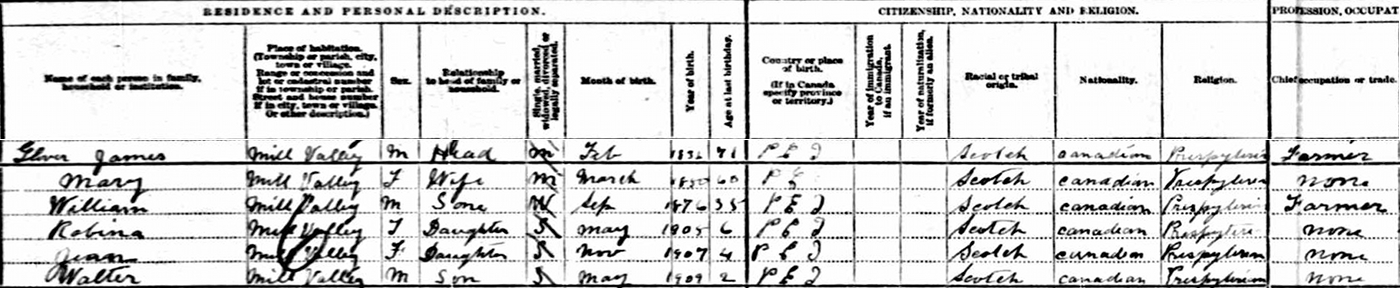 RESIDENCE AND PERSONAL DESCRIPTION. CITIZENSHIP, NATIONALITY AND RELIGION. PROFESSION, OCCUPAT
Name of each person in family, household or institution.
Place of habitation. (Township or parish, city, town or village. Range or concession and lot or cadastral number If in township or parish. Street and house number If in city, town or village. Or other description.)
Sex.
Relationship to head of family or household.
Single, married, widowed, divorced or legally separated.
Month of birth.
Year of birth.
Age at last birthday.
Country or place of birth. (If in Canada specify province or territory.)
Year of immigration to Canada, if an immigrant.
Year of naturalization, if formerly an alien.
Racial or tribal origin.
Nationality.
Religion.
Chief occupation or trade.
James Mill Valley M Head M Feb 71 P E I Scotch canadian Farmer
Mary Mill Valley F Wife M March 60 P E Scotch canadian none
William Mill Valley M Sone Sep 1876 35 P E I Scotch canadian Farmer
Robina Mill Valley F Daughter S may 1905 6 P E I Scotch canadian none
Jean Mill Valley F Daughter S Nov 1907 4 P E I Scotch canadian none
Walter Mill Valley M Son S May 1909 2 P E I Scotch canadian none